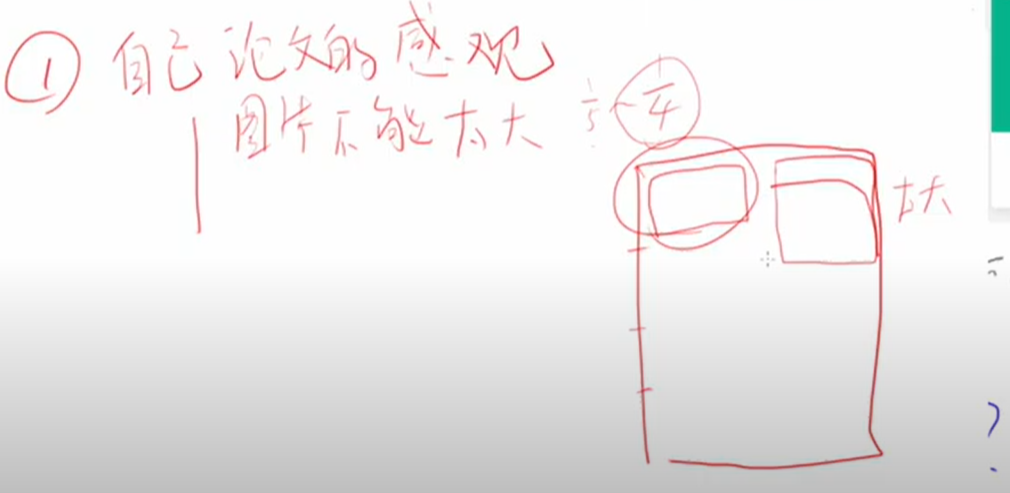 ① 自己论文的感观
图片不能太大 1/5 ~ 1/4
太大
?